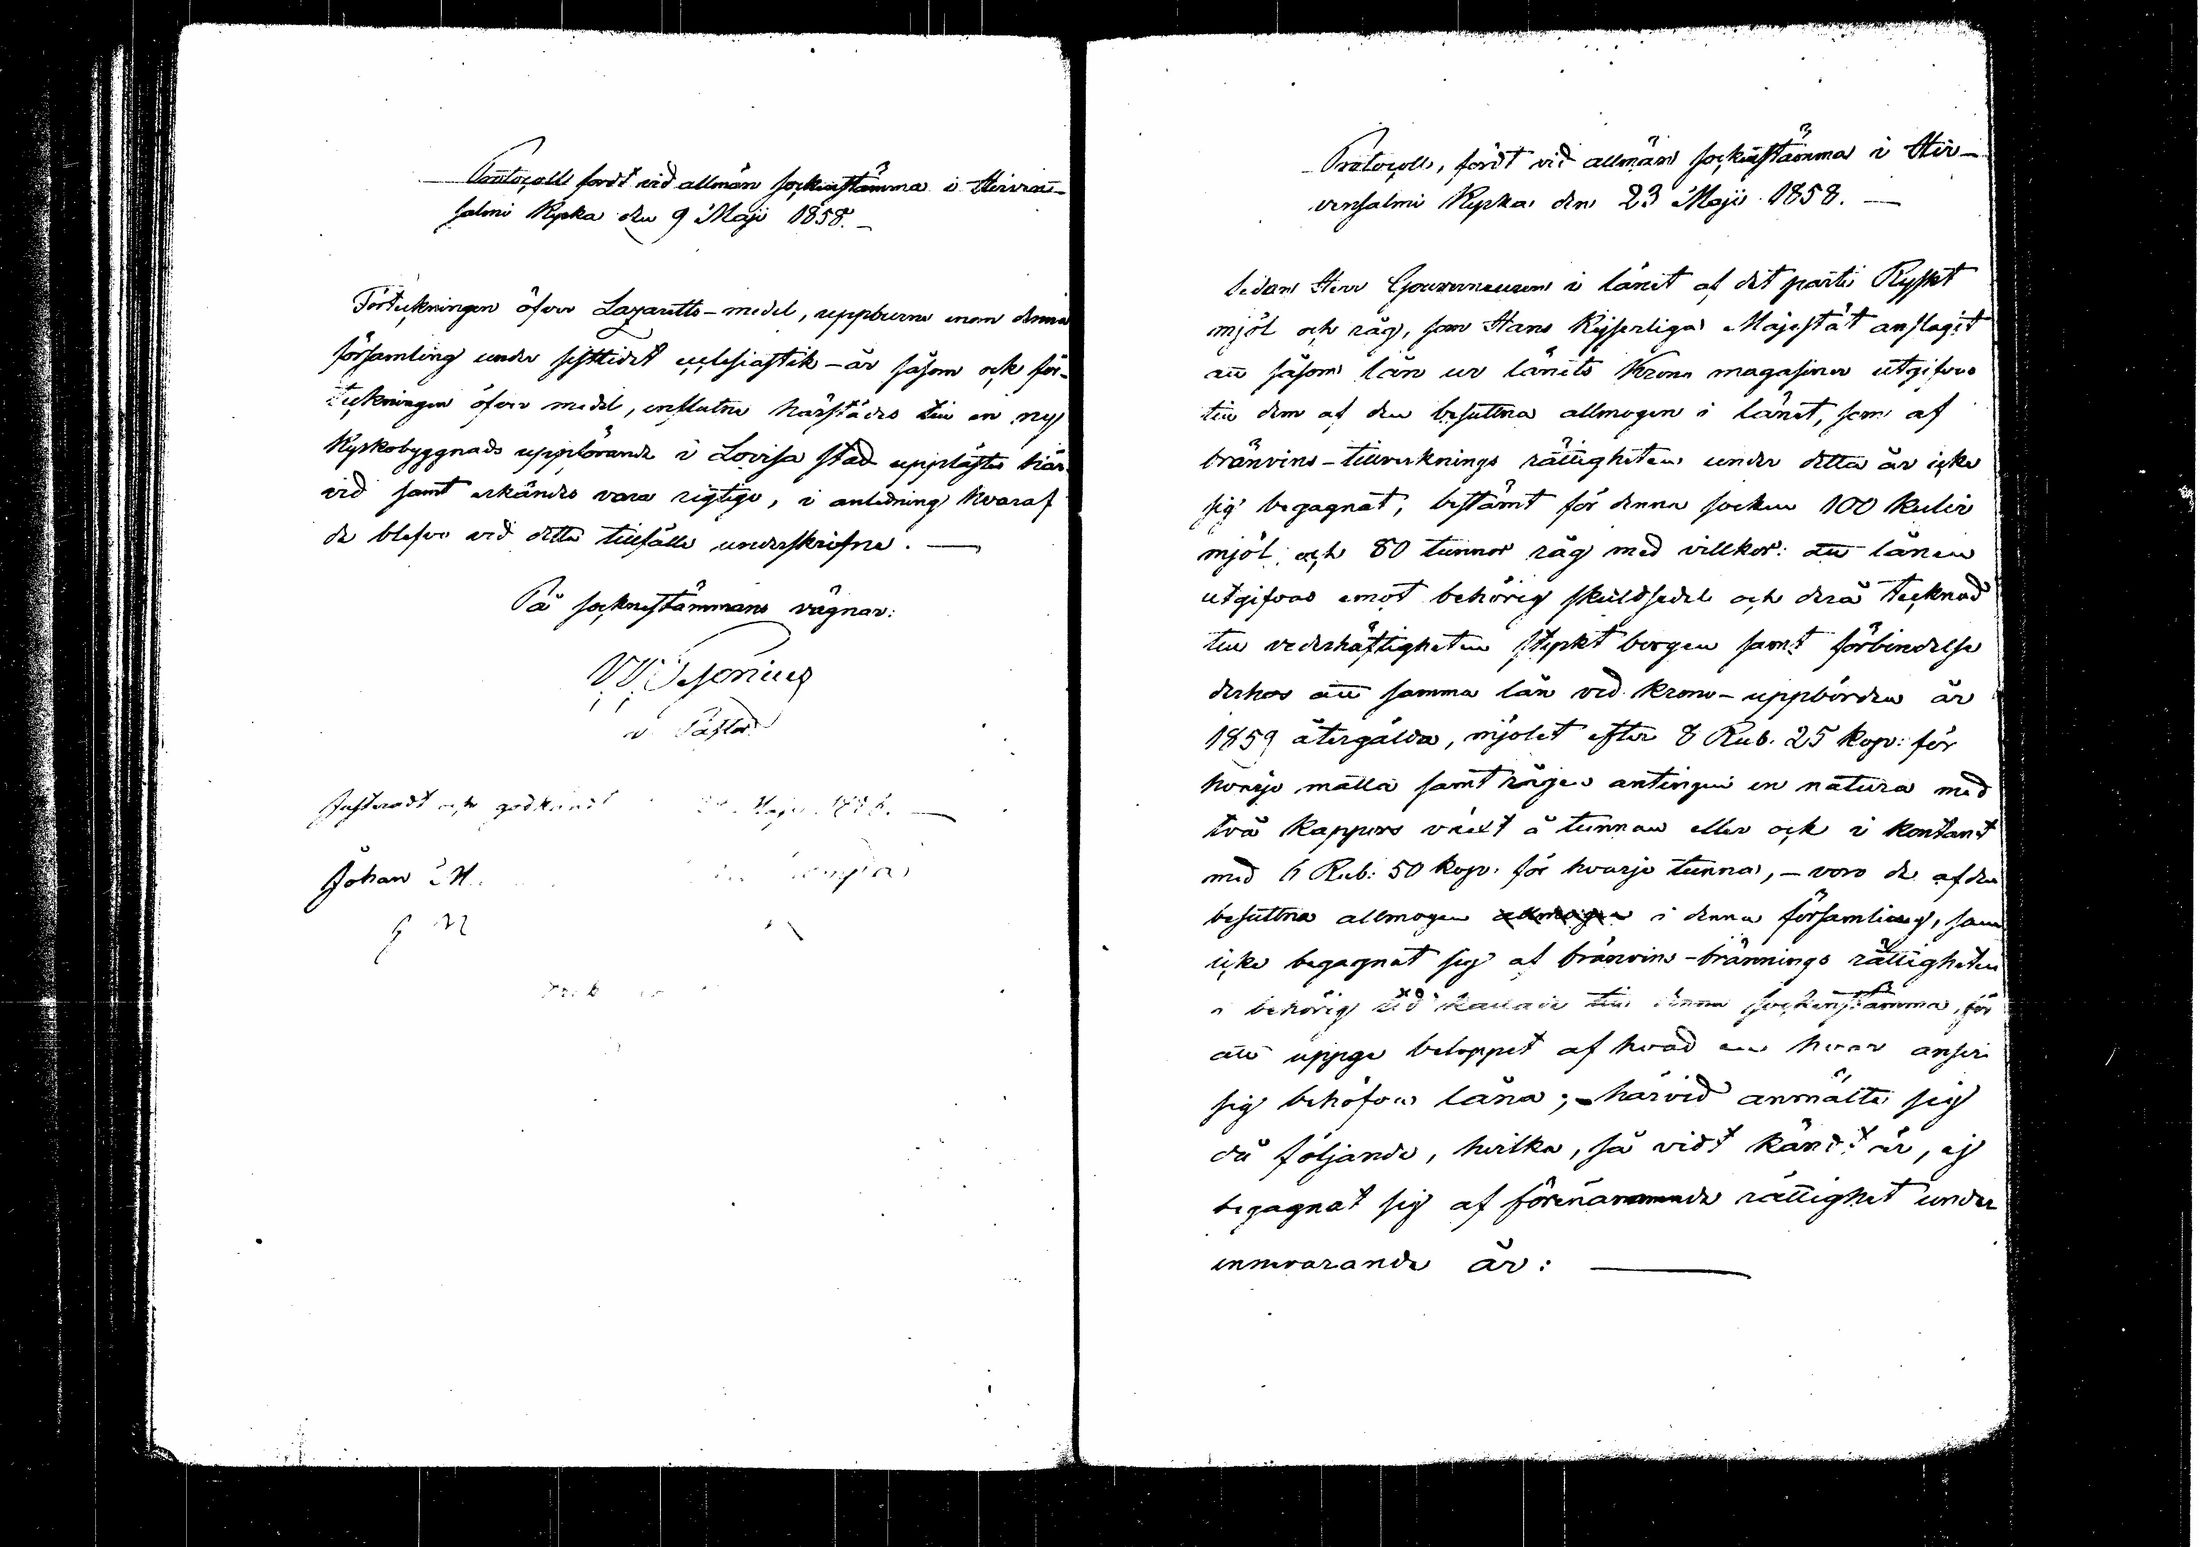 Protocoll fördt vid allmän sockenstämma i Hirven-
salmi Kyrka den 9 Maji 1858.
Förteckningen öfver Lazaretts-medel, uppburne inom denna
församling under sisttidet ecclesiastik-år såsom ock för-
teckningen öfver medel, influtne härstädes till en ny
Kyrkobyggnads uppförande i Lovisa stad upplästes här
vid samt erkändes vara rigtige, i anledning hvaraf
de blefvo vid detta tillfälle underskrifne. —
På sockenstämmans vägnar:
v. Pastor
Justeradt och godkändt Maji
Johan
Protocoll, fördt vid allmän sockenstämma i Hir-
vensalmi Kyrka den 23 Maji 1858. —
Sedan Herr Gouverneuren i länet af det parti Ryskt
mjöl och råg, som Hans Kejserliga Majestät anslagit
att såsom lån ur länets Krono magasiner utgifvas
till dem af den besuttna allmogen i länet, som af
bränvins-tillverknings rättigheten under detta år icke
sig begagnat, bestämt för denna socken 100 kulir
mjöl och 80 tunnor råg med villkor: att lånen
utgifvas emot behörig skuldsedel och derå tecknad
till vederhäftigheten styrkt borgen samt förbindelse
derhos att samma lån vid krono-uppbörden år
1859 återgälda, mjölet efter 8 Rub. 25 kop: för
hvarje matta samt rågen antingen in natura med
två kappars växt å tunnan eller ock i kontant
med 6 Rub: 50 kop. för hvarje tunna, — voro de af den
besuttna allmogen allmogen i denna församling, som
icke begagnat sig af bränvins-brännings rättigheten
i behörig tid kallade till denna sockenstämma, för
att uppge beloppet af hvad en hvar anser
sig behöfva låna; — härvid anmälte sig
då följande, hvilka, så vidt kändt är, ej
begagnat sig af förenämnde rättighet under
innevarande år: —